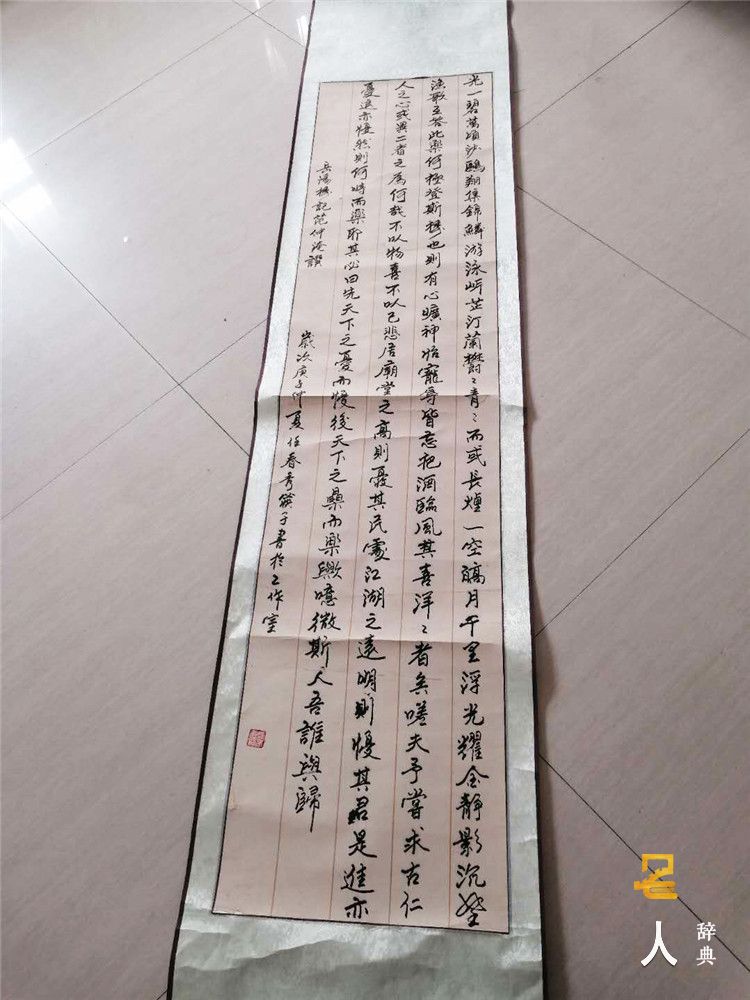 光一碧萬頃沙鷗翔集錦鱗游泳岸芷汀蘭欝〻青〻而或長煙一空皜月千里浮光耀金靜影沉璧
漁歌互答此樂何極登斯樓也則有心曠神怡寵辱皆忘把酒臨風其喜洋〻者矣嗟夫予嘗求古仁
人之心或異二者之為何哉不以物喜不以己悲居廟堂之高則憂其民處江湖之遠明則懮其君是進亦
憂退亦懮然則何時而樂耶其必曰先天下之憂而懮後天下之樂而樂歟噫微斯人吾誰與歸
岳陽樓記范仲淹譔
歲次庚子仲夏任春秀筱子書於工作室
名人辞典